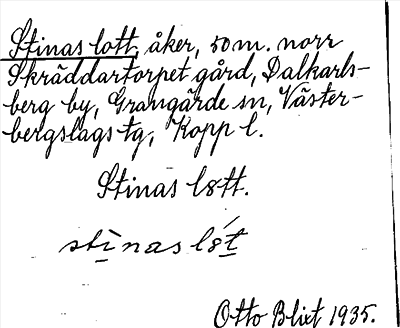 Stinas lott, åker, 50 m. norr
Skräddartorpet gård, Dalkarls-
berg by, Grangärde sn, Väster-
bergslags tg, Kopp l.
Stinas lått.
Otto Blixt 1935.